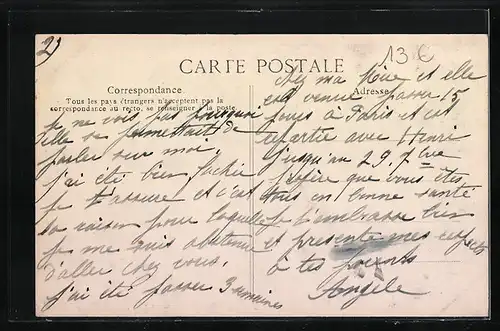 2)
13 €
CARTE POSTALE
Correspondance
Tous les pays étrangers n'acceptent pas la
correspondance au recto, se renseigner à la poste.
je ne vois pas pourquoi
elle se permettait de
parler sur moi.
j'ai été bien fachée
je t'assure et c'est
la raison pour laquelle
je me suis abstenue
d'aller chez vous.
j'ai été passer 3 semaines
Adresse
chez ma et elle
est venue passer 15
jours à Paris et est
repartie avec Henri
jusqu'au 29.
j'espère que vous êtes
tous en bonne santé
je t'embrasse bien
et presente mes respects
à tes parents
Angèle